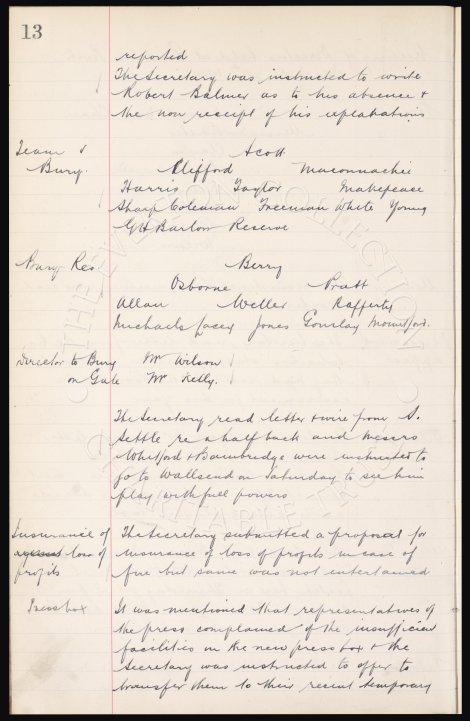 13
reported
The Secretary was instructed to write
Robert Balmer as to his absence &
the non receipt of his explanations
Team v Bury.
Scott
Clifford Maconnachie
Harris Taylor Makepeace
Sharp Coleman Freeman White Young
G H Barlow Reserve
Bury Res
Berry
Osborne Pratt
Allan Weller Rafferty
Michaels Lacey Jones Gourlay Mountford.
Director to Bury Mr Wilson
on Gate Mr Kelly.
The Secretary read letter & wire from A.
Settle re a half back and Messrs
Whitford & Bainbridge were instructed to
go to Wallsend on Saturday to see him
play with full powers
Insurance of
against loss of
profits
The Secretary submitted a proposal for
insurance of loss of profits in case of
fire but same was not entertained
Press box
It was mentioned that representatives of
the press complained of the insufficient
facilities in the new press box & the
Secretary was instructed to offer to
transfer them to their recent temporary
THE EVERTON COLLECTION
CHARITABLE TRUST